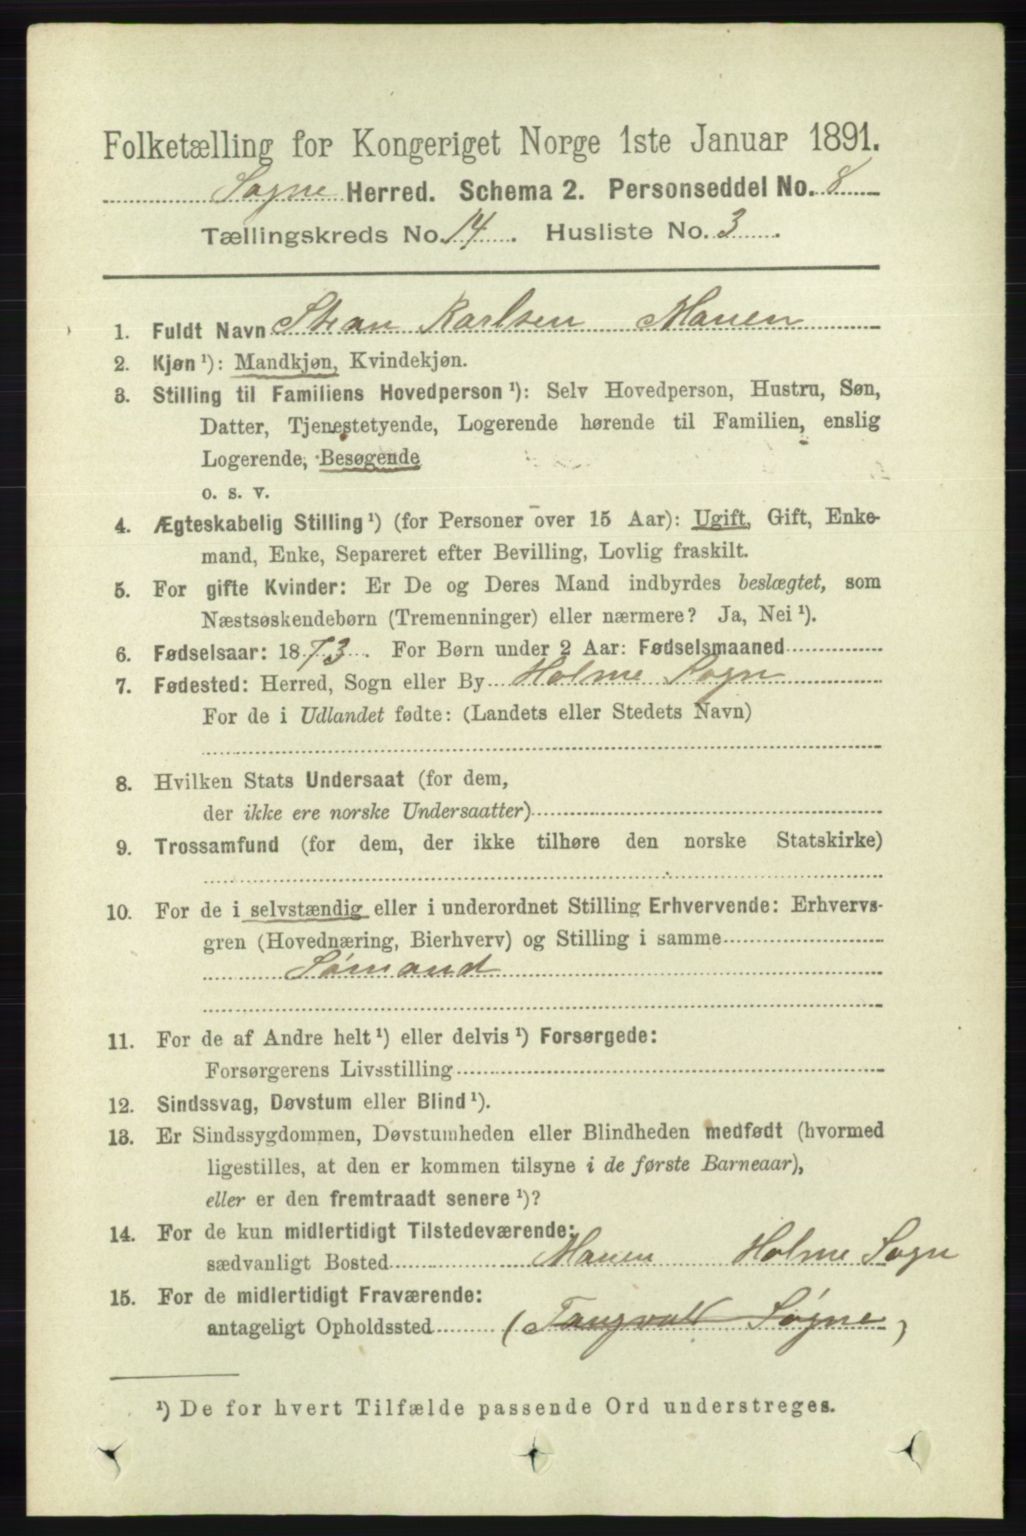 Folketælling for Kongeriget Norge 1ste Januar 1891.
Søgne Herred. Schema 2. Personseddel No. 8
Tællingskreds No. 14. Husliste No. 3.
1. Fuldt Navn Stean Karlsen Manen
2. Kjøn ¹): Mandkjøn, Kvindekjøn.
3. Stilling til Familiens Hovedperson ¹): Selv Hovedperson, Hustru, Søn,
Datter, Tjenestetyende, Logerende hørende til Familien, enslig
Logerende, Besøgende
o. s. v.
4. Ægteskabelig Stilling ¹) (for Personer over 15 Aar): Ugift, Gift, Enke-
mand, Enke, Separeret efter Bevilling, Lovlig fraskilt.
5. For gifte Kvinder: Er De og Deres Mand indbyrdes beslægtet, som
Næstsøskendebørn (Tremenninger) eller nærmere? Ja, Nei ¹).
6. Fødselsaar: 1873. For Børn under 2 Aar: Fødselsmaaned
7. Fødested: Herred, Sogn eller By Holme Sogn
For de i Udlandet fødte: (Landets eller Stedets Navn)
8. Hvilken Stats Undersaat (for dem,
der ikke ere norske Undersaatter)
9. Trossamfund (for dem, der ikke tilhøre den norske Statskirke)
10. For de i selvstændig eller i underordnet Stilling Erhvervende: Erhvervs-
gren (Hovednæring, Bierhverv) og Stilling i samme
Sømand
11. For de af Andre helt ¹) eller delvis ¹) Forsørgede:
Forsørgerens Livsstilling
12. Sindssvag, Døvstum eller Blind ¹).
13. Er Sindssygdommen, Døvstumheden eller Blindheden medfødt (hvormed
ligestilles, at den er kommen tilsyne i de første Barneaar),
eller er den fremtraadt senere ¹)?
14. For de kun midlertidigt Tilstedeværende:
sædvanligt Bosted Manen Holme Sogn
15. For de midlertidigt Fraværende:
antageligt Opholdssted (Tangvall Søgne)
¹) De for hvert Tilfælde passende Ord understreges.